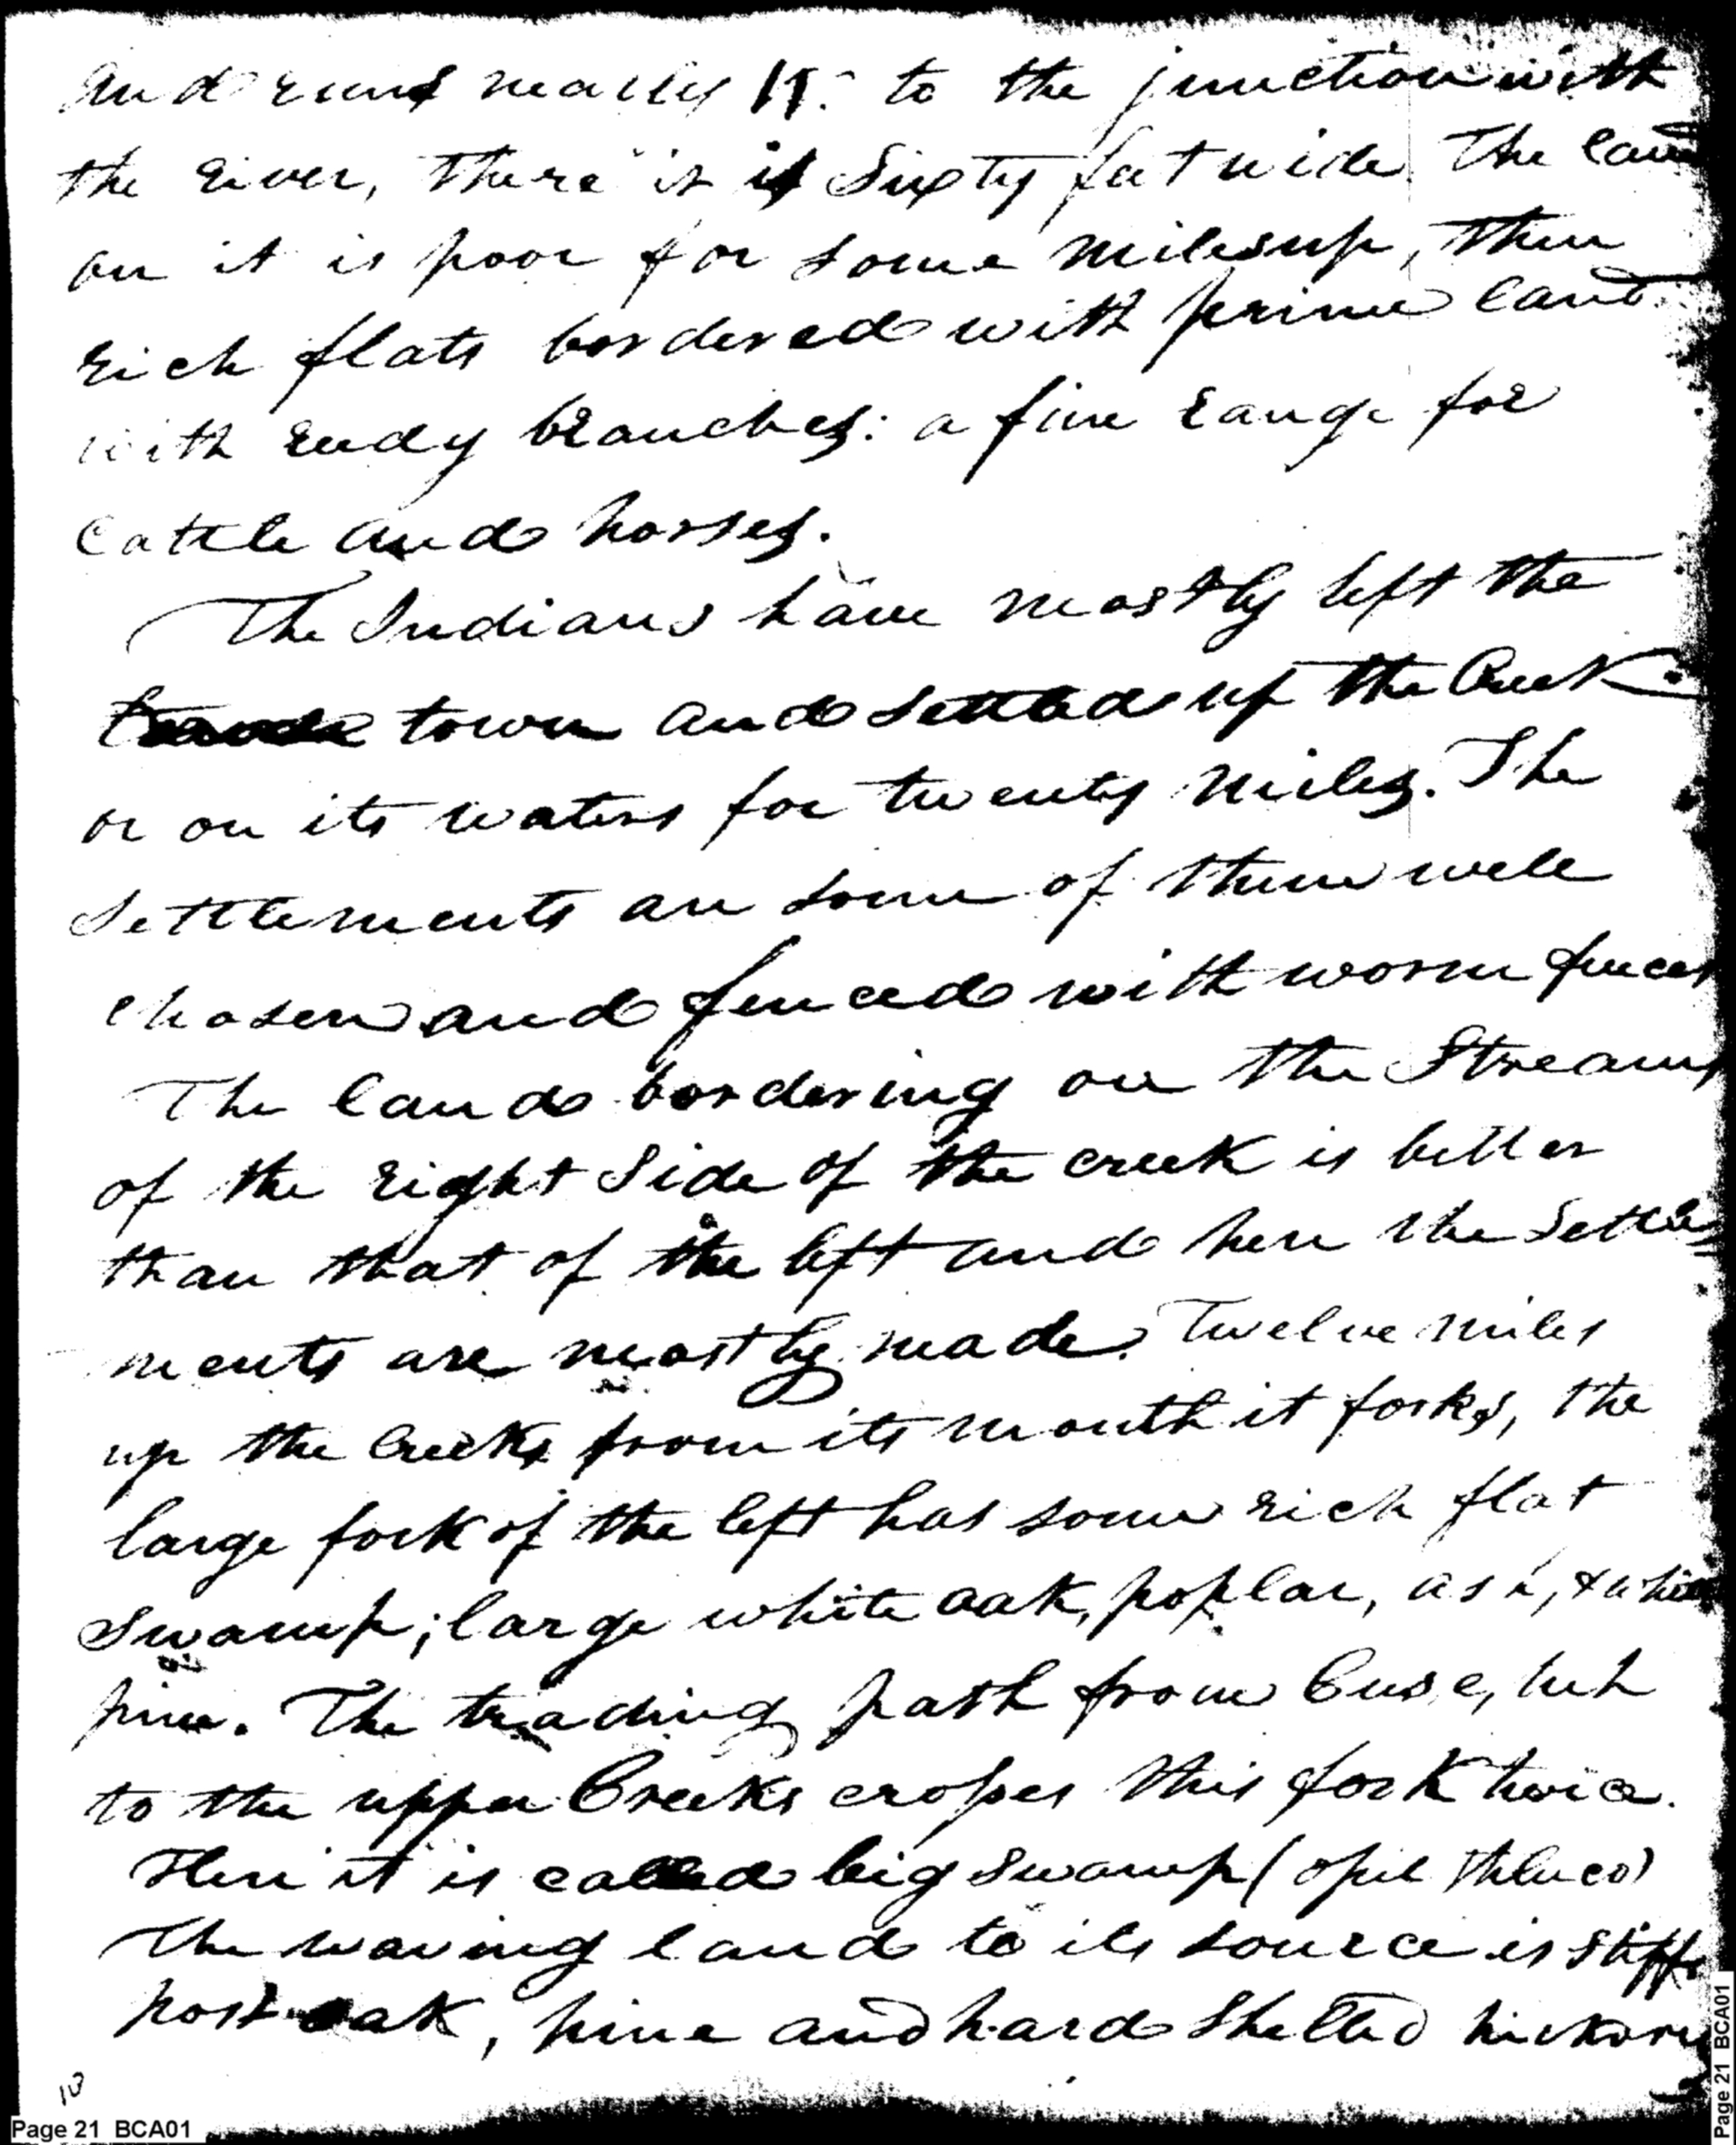 and runs nearly N. to the junction with
the river, there it is Sixty feet wide. The land
on it is poor for some miles up, then
rich flats bordered with prime land
with reedy branches: a fine range for
Cattle and horses.
The Indians have mostly left the
town and settled up the Creek
or on its waters for twenty miles. The
settlements are some of them well
chosen and fenced with worm fences
The land bordering on the Streams
of the right Side of the creek is better
than that of the left and here the settle=
ments are mostly made. Twelve miles
up the Creek from its mouth it forks, the
large fork of the left has some rich flat
swamp; large white oak, poplar, ash, & white
pine. The trading path from Cuse, tuh
to the upper Creeks crosses this fork twice.
Here it is called big swamp (opil thluco)
The waving land to its source is stiff
post oak, pine and hard shelled hickory
10
Page 21 BCA01
Page 21 BCA01